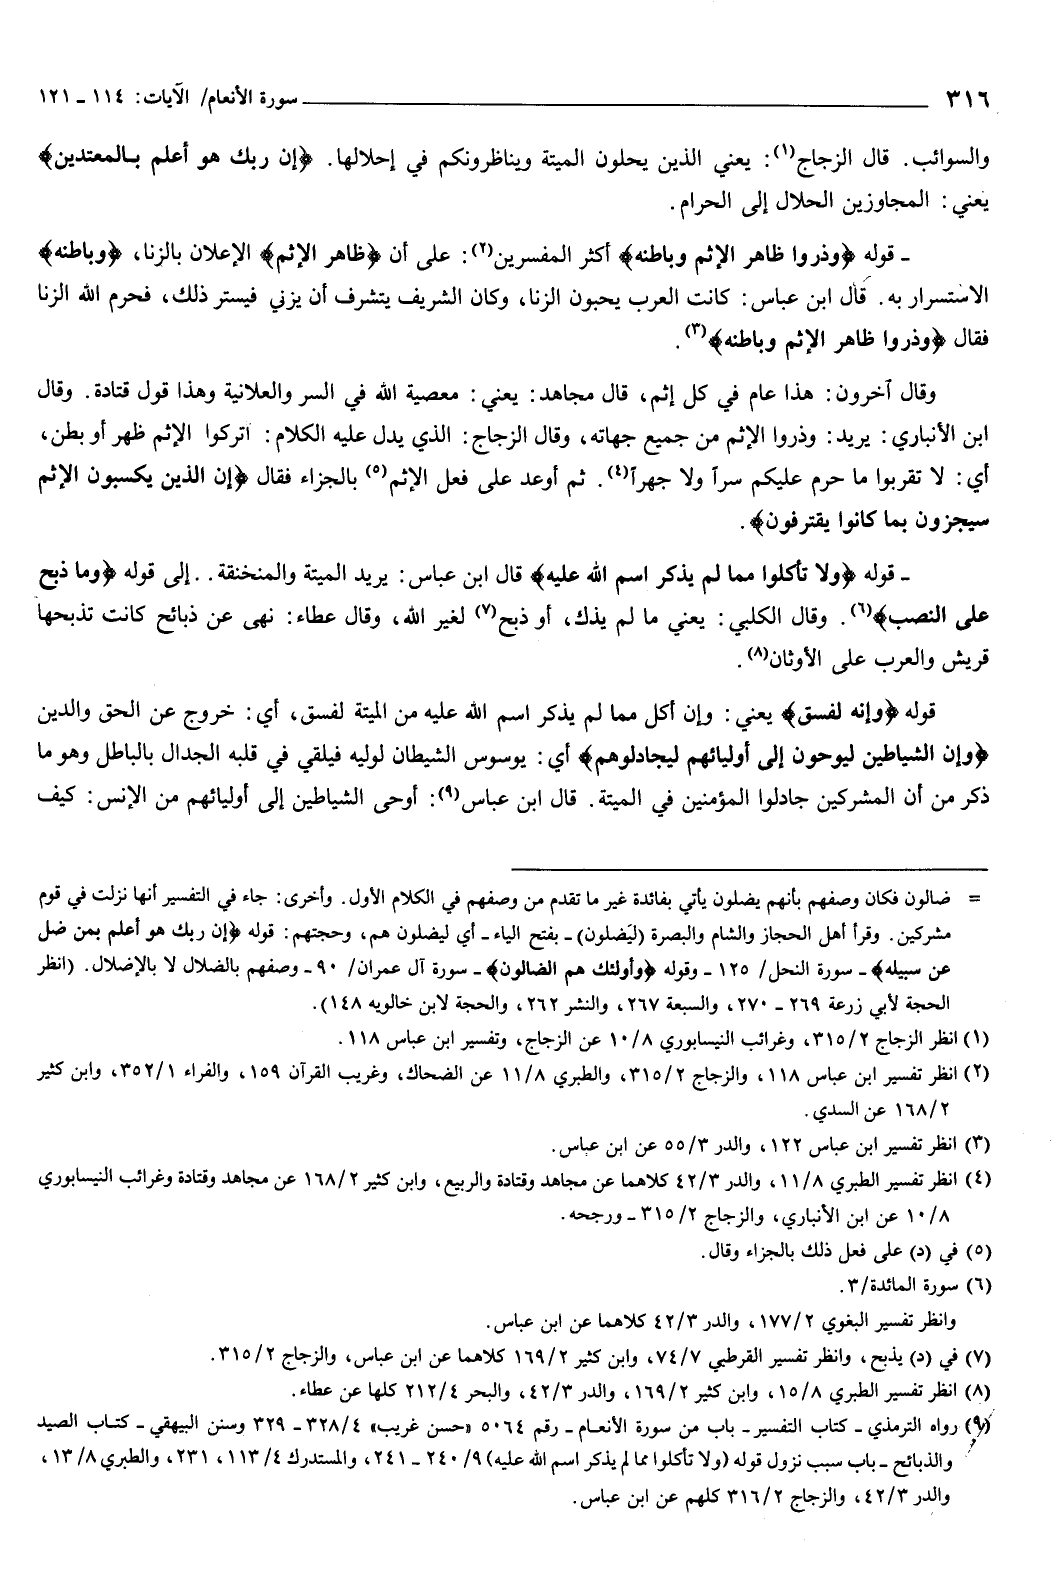 ٣١٦ ـــــــ سورة الأنعام/ الآيات: ١١٤ ـ ١٢١
والسوائب. قال الزجاج(١): يعني الذين يحلون الميتة ويناظرونكم في إحلالها. ﴿إن ربك هو أعلم بالمعتدين﴾
يعني: المجاوزين الحلال إلى الحرام.
ـ قوله ﴿وذروا ظاهر الإثم وباطنه﴾ أكثر المفسرين(٢): على أن ﴿ظاهر الإثم﴾ الإعلان بالزنا، ﴿وباطنه﴾
الاستسرار به. قال ابن عباس: كانت العرب يحبون الزنا، وكان الشريف يتشرف أن يزني فيستر ذلك، فحرم الله الزنا
فقال ﴿وذروا ظاهر الإثم وباطنه﴾(٣).
وقال آخرون: هذا عام في كل إثم، قال مجاهد: يعني: معصية الله في السر والعلانية وهذا قول قتادة. وقال
ابن الأنباري: يريد: وذروا الإثم من جميع جهاته، وقال الزجاج: الذي يدل عليه الكلام: اتركوا الإثم ظهر أو بطن،
أي: لا تقربوا ما حرم عليكم سرآ ولا جهرآ(٤). ثم أوعد على فعل الإثم(٥) بالجزاء فقال ﴿إن الذين يكسبون الإثم
سيجزون بما كانوا يقترفون﴾.
ـ قوله ﴿ولا تأكلوا مما لم يذكر اسم الله عليه﴾ قال ابن عباس: يريد الميتة والمنخنقة. . إلى قوله ﴿وما ذبح
على النصب﴾(٦). وقال الكلبي: يعني ما لم يذك، أو ذبح(٧) لغير الله، وقال عطاء: نهى عن ذبائح كانت تذبحها
قريش والعرب على الأوثان(٨).
قوله ﴿وإنه لفسق﴾ يعني: وإن أكل مما لم يذكر اسم الله عليه من الميتة لفسق، أي: خروج عن الحق والدين
﴿وإن الشياطين ليوحون إلى أوليائهم ليجادلوهم﴾ أي: يوسوس الشيطان لوليه فيلقي في قلبه الجدال بالباطل وهو ما
ذكر من أن المشركين جادلوا المؤمنين في الميتة. قال ابن عباس(٩): أوحى الشياطين إلى أوليائهم من الإنس: كيف
= ضالون فكان وصفهم بأنهم يضلون يأتي بفائدة غير ما تقدم من وصفهم في الكلام الأول. وأخرى: جاء في التفسير أنها نزلت في قوم
مشركين. وقرأ أهل الحجاز والشام والبصرة (ليَضلون) ـ بفتح الياء ـ أي ليضلون هم، وحجتهم: قوله ﴿إن ربك هو أعلم بمن ضل
عن سبيله﴾ ـ سورة النحل/ ١٢٥ ـ وقوله ﴿وأولئك هم الضالون﴾ ـ سورة آل عمران/ ٩٠ ـ وصفهم بالضلال لا بالإضلال. (انظر
الحجة لأبي زرعة ٢٦٩ ـ ٢٧٠، والسبعة ٢٦٧، والنشر ٢٦٢، والحجة لابن خالويه ١٤٨).
(١) انظر الزجاج ٣١٥/٢، وغرائب النيسابوري ١٠/٨ عن الزجاج، وتفسير ابن عباس ١١٨.
(٢) انظر تفسير ابن عباس ١١٨، والزجاج ٣١٥/٢، والطبري ١١/٨ عن الضحاك، وغريب القرآن ١٥٩، والفراء ٣٥٢/١، وابن كثير
١٦٨/٢ عن السدي.
(٣) انظر تفسير ابن عباس ١٢٢، والدر ٥٥/٣ عن ابن عباس.
(٤) انظر تفسير الطبري ١١/٨، والدر ٤٢/٣ كلاهما عن مجاهد وقتادة والربيع، وابن كثير ١٦٨/٢ عن مجاهد وقتادة وغرائب النيسابوري
١٠/٨ عن ابن الأنباري، والزجاج ٣١٥/٢ ـ ورجحه.
(٥) في (د) على فعل ذلك بالجزاء وقال.
(٦) سورة المائدة/٣.
وانظر تفسير البغوي ١٧٧/٢، والدر ٤٢/٣ كلاهما عن ابن عباس.
(٧) في (د) يذبح، وانظر تفسير القرطبي ٧٤/٧، وابن كثير ١٦٩/٢ كلاهما عن ابن عباس، والزجاج ٣١٥/٢.
(٨) انظر تفسير الطبري ١٥/٨، وابن كثير ١٦٩/٢، والدر ٤٢/٣، والبحر ٢١٢/٤ كلها عن عطاء.
(٩) رواه الترمذي ـ كتاب التفسير ـ باب من سورة الأنعام ـ رقم ٥٠٦٤ «حسن غريب» ٣٢٨/٤ ـ ٣٢٩ وسنن البيهقي ـ كتاب الصيد
والذبائح ـ باب سبب نزول قوله (ولا تأكلوا مما لم يذكر اسم الله عليه) ٢٤٠/٩ ـ ٢٤١، والمستدرك ١١٣/٤، ٢٣١، والطبري ١٣/٨،
والدر ٤٢/٣، والزجاج ٣١٦/٢ كلهم عن ابن عباس.